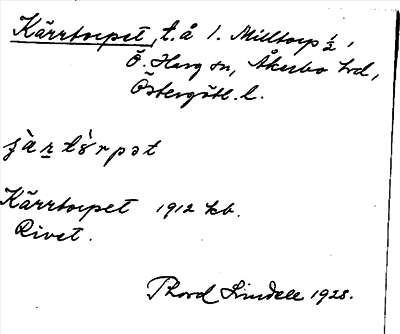 Kärrtorpet, t. å 1. Milltorp ½,
Ö. Harg sn, Åkerbo hd,
Östergötl. l.
Kärrtorpet 1912 kb.
Rivet.
Thord Lindell 1928.